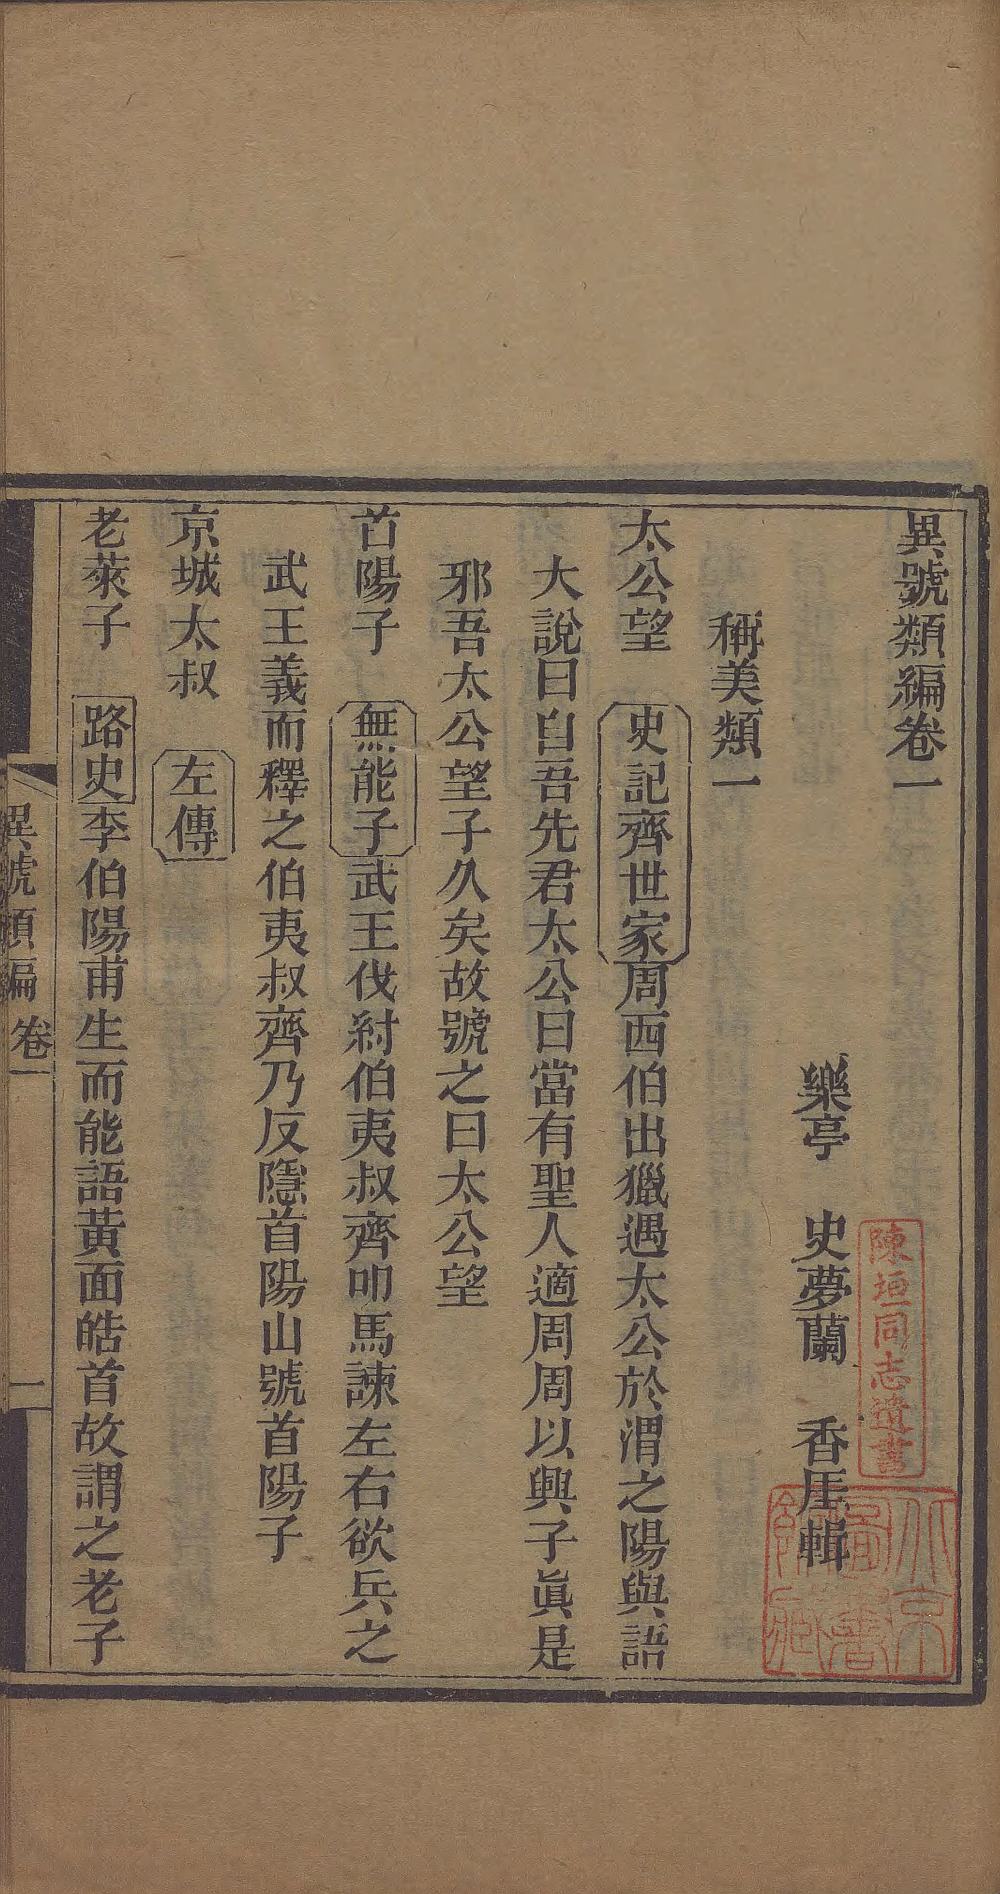 異號類編卷一
樂亭 史夢蘭 香厓輯
稱美類一
太公望 史記齊世家周西伯出獵遇太公於渭之陽與語
大說曰自吾先君太公曰當有聖人適周周以興子眞是
邪吾太公望子久矣故號之曰太公望
首陽子 無能子武王伐紂伯夷叔齊叩馬諫左右欲兵之
武王義而釋之伯夷叔齊乃反隱首陽山號首陽子
京城太叔 左傳
老萊子 路史李伯陽甫生而能語黃面皓首故謂之老子
異號類編 卷一
一
陳垣同志遺書
北京圖書館藏